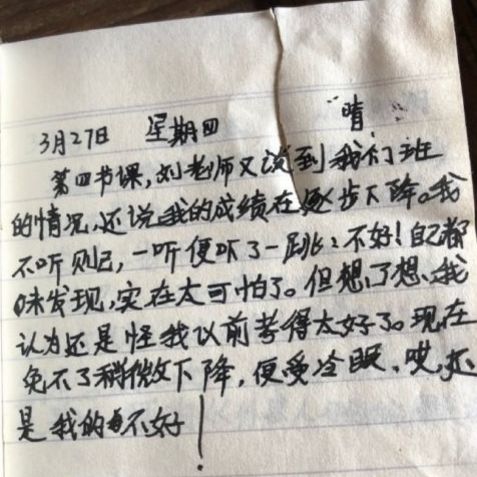 3月27日 星期四 晴
第四节课,刘老师又谈到我们班
的情况,还说我的成绩在逐步下降。我
不听则已,一听便吓了一跳:不好!自己都
味发现,实在太可怕了。但想了想,我
认为还是怪我以前考得太好了。现在
免不了稍微下降,便受冷眼,哎,还
是我的不好!